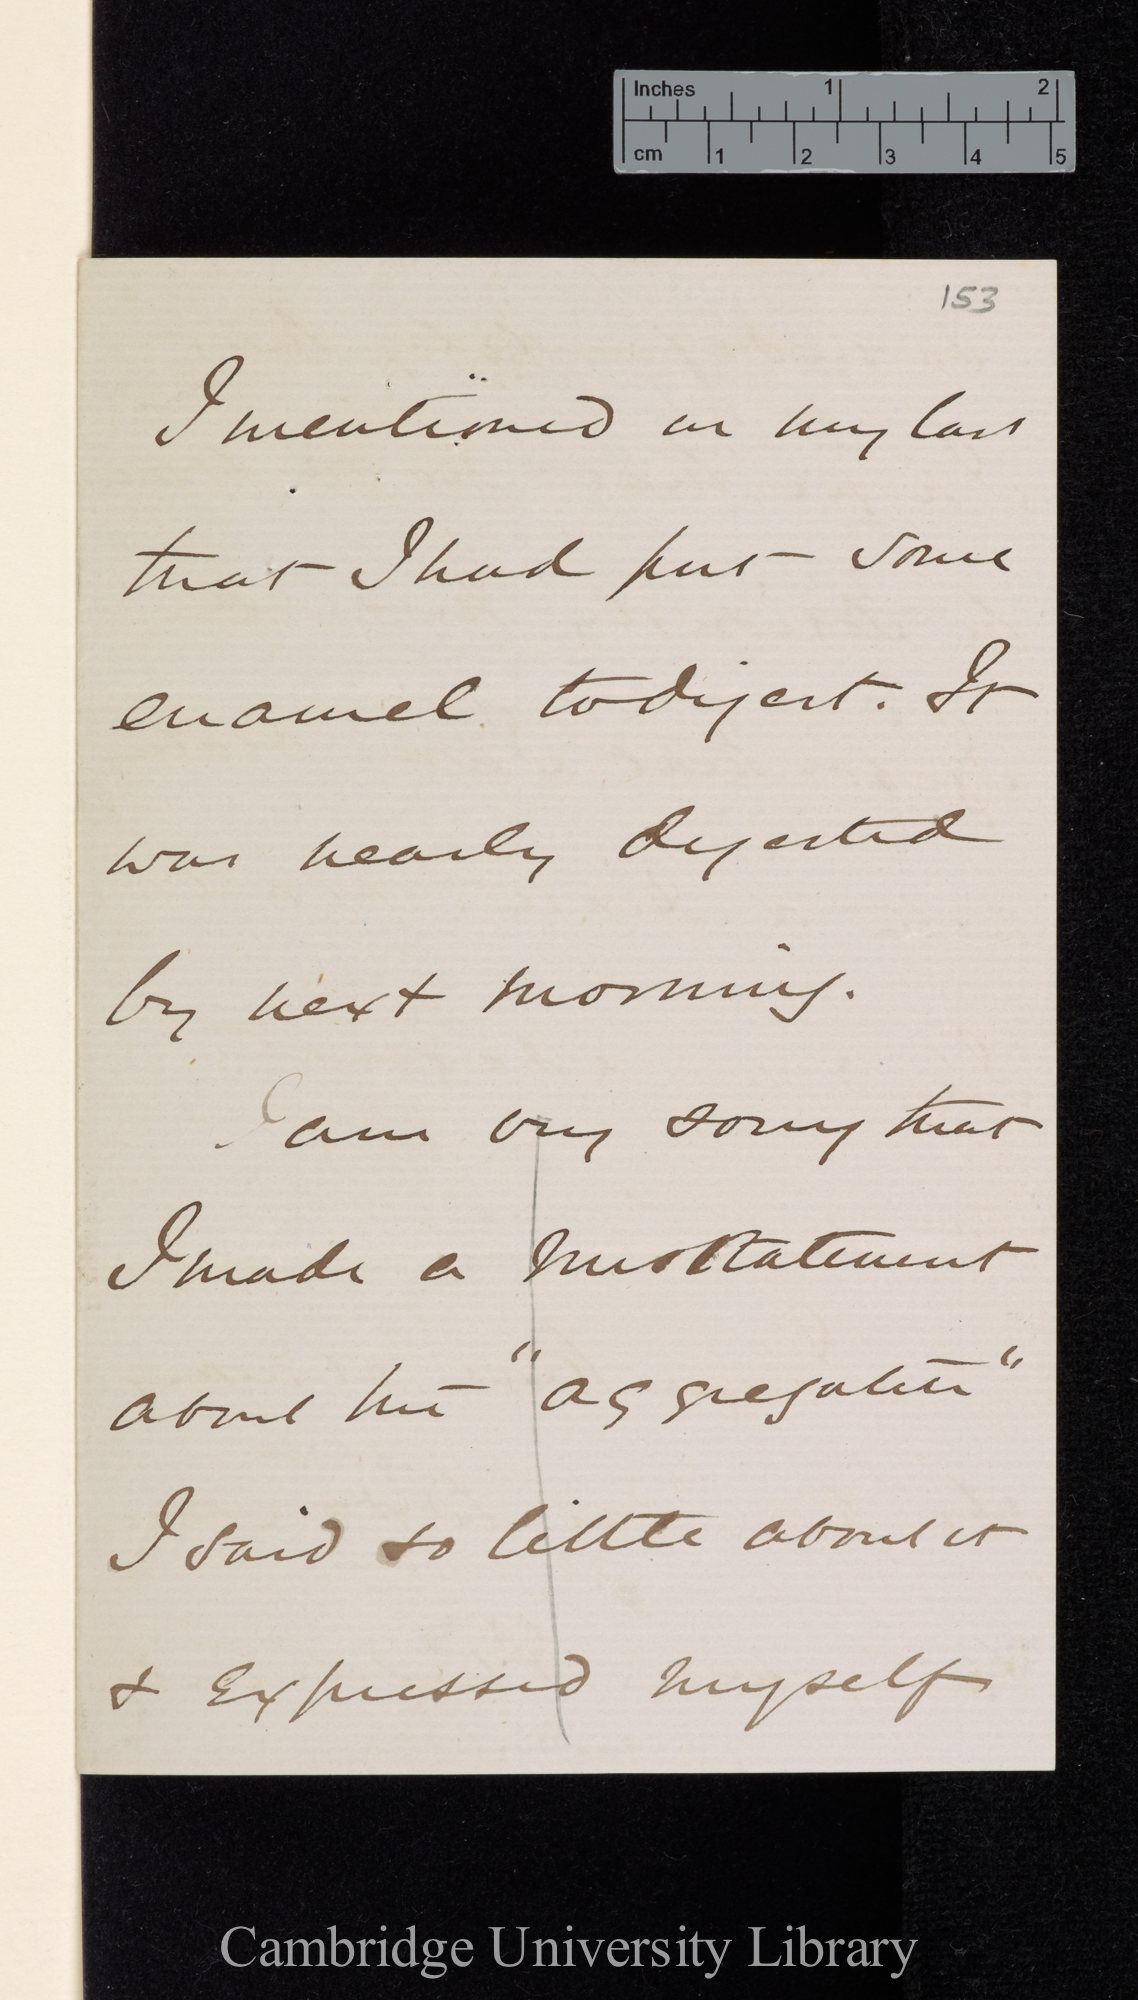 Inches 1 2
cm 1 2 3 4 5
153
I mentioned in my last
that I had put some
enamel to digest. It
was nearly digested
by next morning.
I am very sorry that
I made a misstatement
about the "aggregation"
I said so little about it
& expressed myself
Cambridge University Library